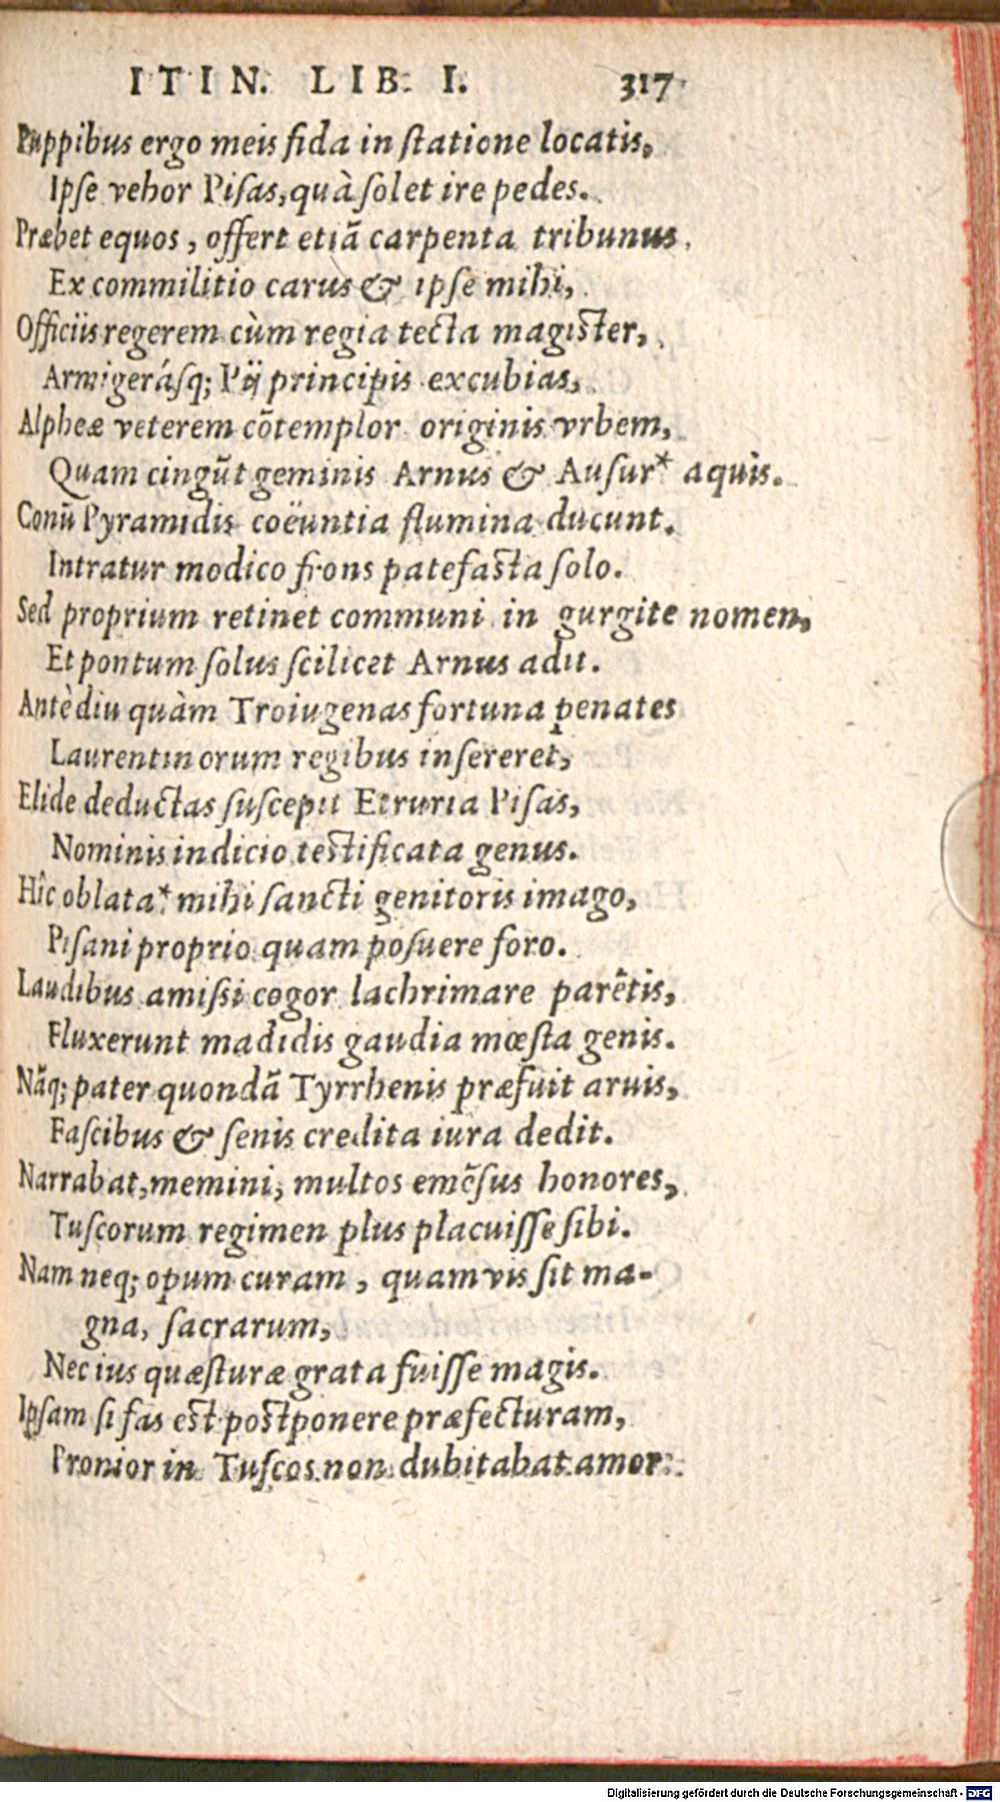 ITIN. LIB. I. 317
Puppibus ergo meis fida in ſtatione locatis,
Ipſe vehor Piſas, quà ſolet ire pedes.
Præbet equos, offert etiā carpenta tribunus,
Ex commilitio carus & ipſe mihi,
Officiis regerem cùm regia tecta magiſter,
Armigeráſq; Pij principis excubias,
Alpheæ veterem cōtemplor originis vrbem,
Quam cingūt geminis Arnus & Auſur* aquis.
Conū Pyramidis coëuntia flumina ducunt.
Intratur modico frons patefaſta ſolo.
Sed proprium retinet communi in gurgite nomen,
Et pontum ſolus ſcilicet Arnus adit.
Antè diu quàm Troiugenas fortuna penates
Laurentinorum regibus inſereret,
Elide deductas ſuſcepit Etruria Piſas,
Nominis indicio teſtificata genus.
Hîc oblata* mihi ſancti genitoris imago,
Piſani proprio quam poſuere foro.
Laudibus amiſſi cogor lachrimare parētis,
Fluxerunt madidis gaudia mœſta genis.
Nāq; pater quondā Tyrrhenis præfuit aruis,
Faſcibus & ſenis credita iura dedit.
Narrabat, memini, multos emēſus honores,
Tuſcorum regimen plus placuiſſe ſibi.
Nam neq; opum curam, quamvis ſit ma-
gna, ſacrarum,
Nec ius quæſturæ grata fuiſſe magis.
Ipſam ſi fas eſt poſtponere præfecturam,
Pronior in Tuſcos non dubitabat amor.
Digitalisierung gefördert durch die Deutsche Forschungsgemeinschaft - DFG